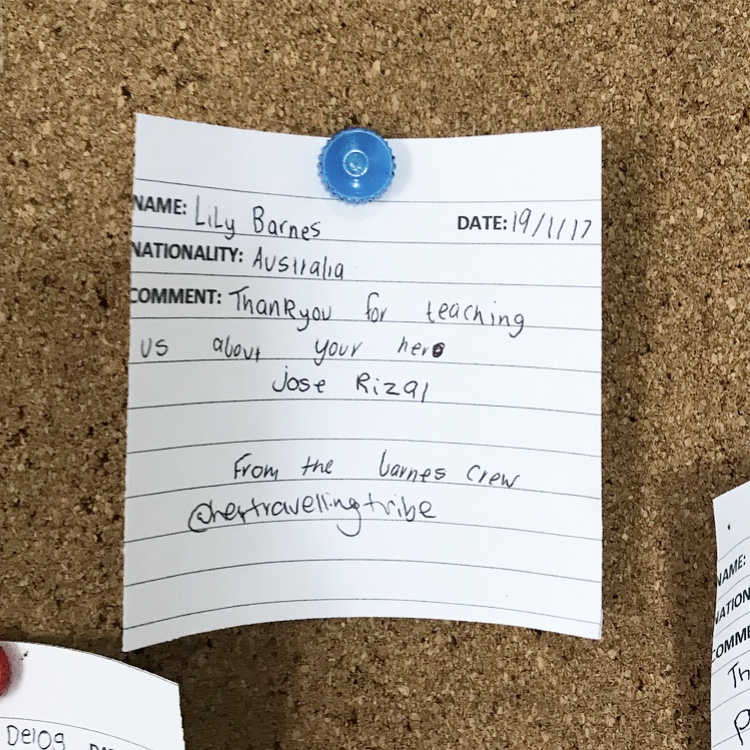 NAME: Lily Barnes DATE: 19/1/17
NATIONALITY: Australia
COMMENT: Thankyou for teaching
us about your hero
Jose Rizal
From the barnes crew
@hertravellingtribe
Delog
NAME:
NATION
COMME
Th